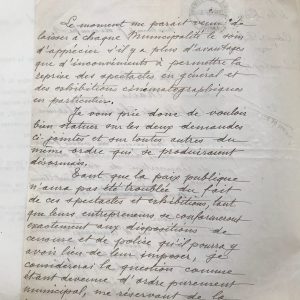 Le moment me parait venu de
laisser à chaque Municipalité le soin
d'apprécier s'il y a plus d'avantages
que d'inconvénients à permettre la
reprise des spectacles en général et
des exhibitions cinématographiques
en particulier.
Je vous prie donc de vouloir
bien statuer sur les deux demandes
ci jointes et sur toutes autres du
même ordre qui se produiraient
désormais.
Tant que la paix publique
n'aura pas été troublée du fait
de ces spectacles et exhibitions, tant
que leurs entrepreneurs se conformeront
exactement aux dispositions de
censure et de police qu'il pourra y
avoir lieu de leur imposer, je
considèrerai la question comme
étant devenue d'ordre purement
municipal, me réservant de la